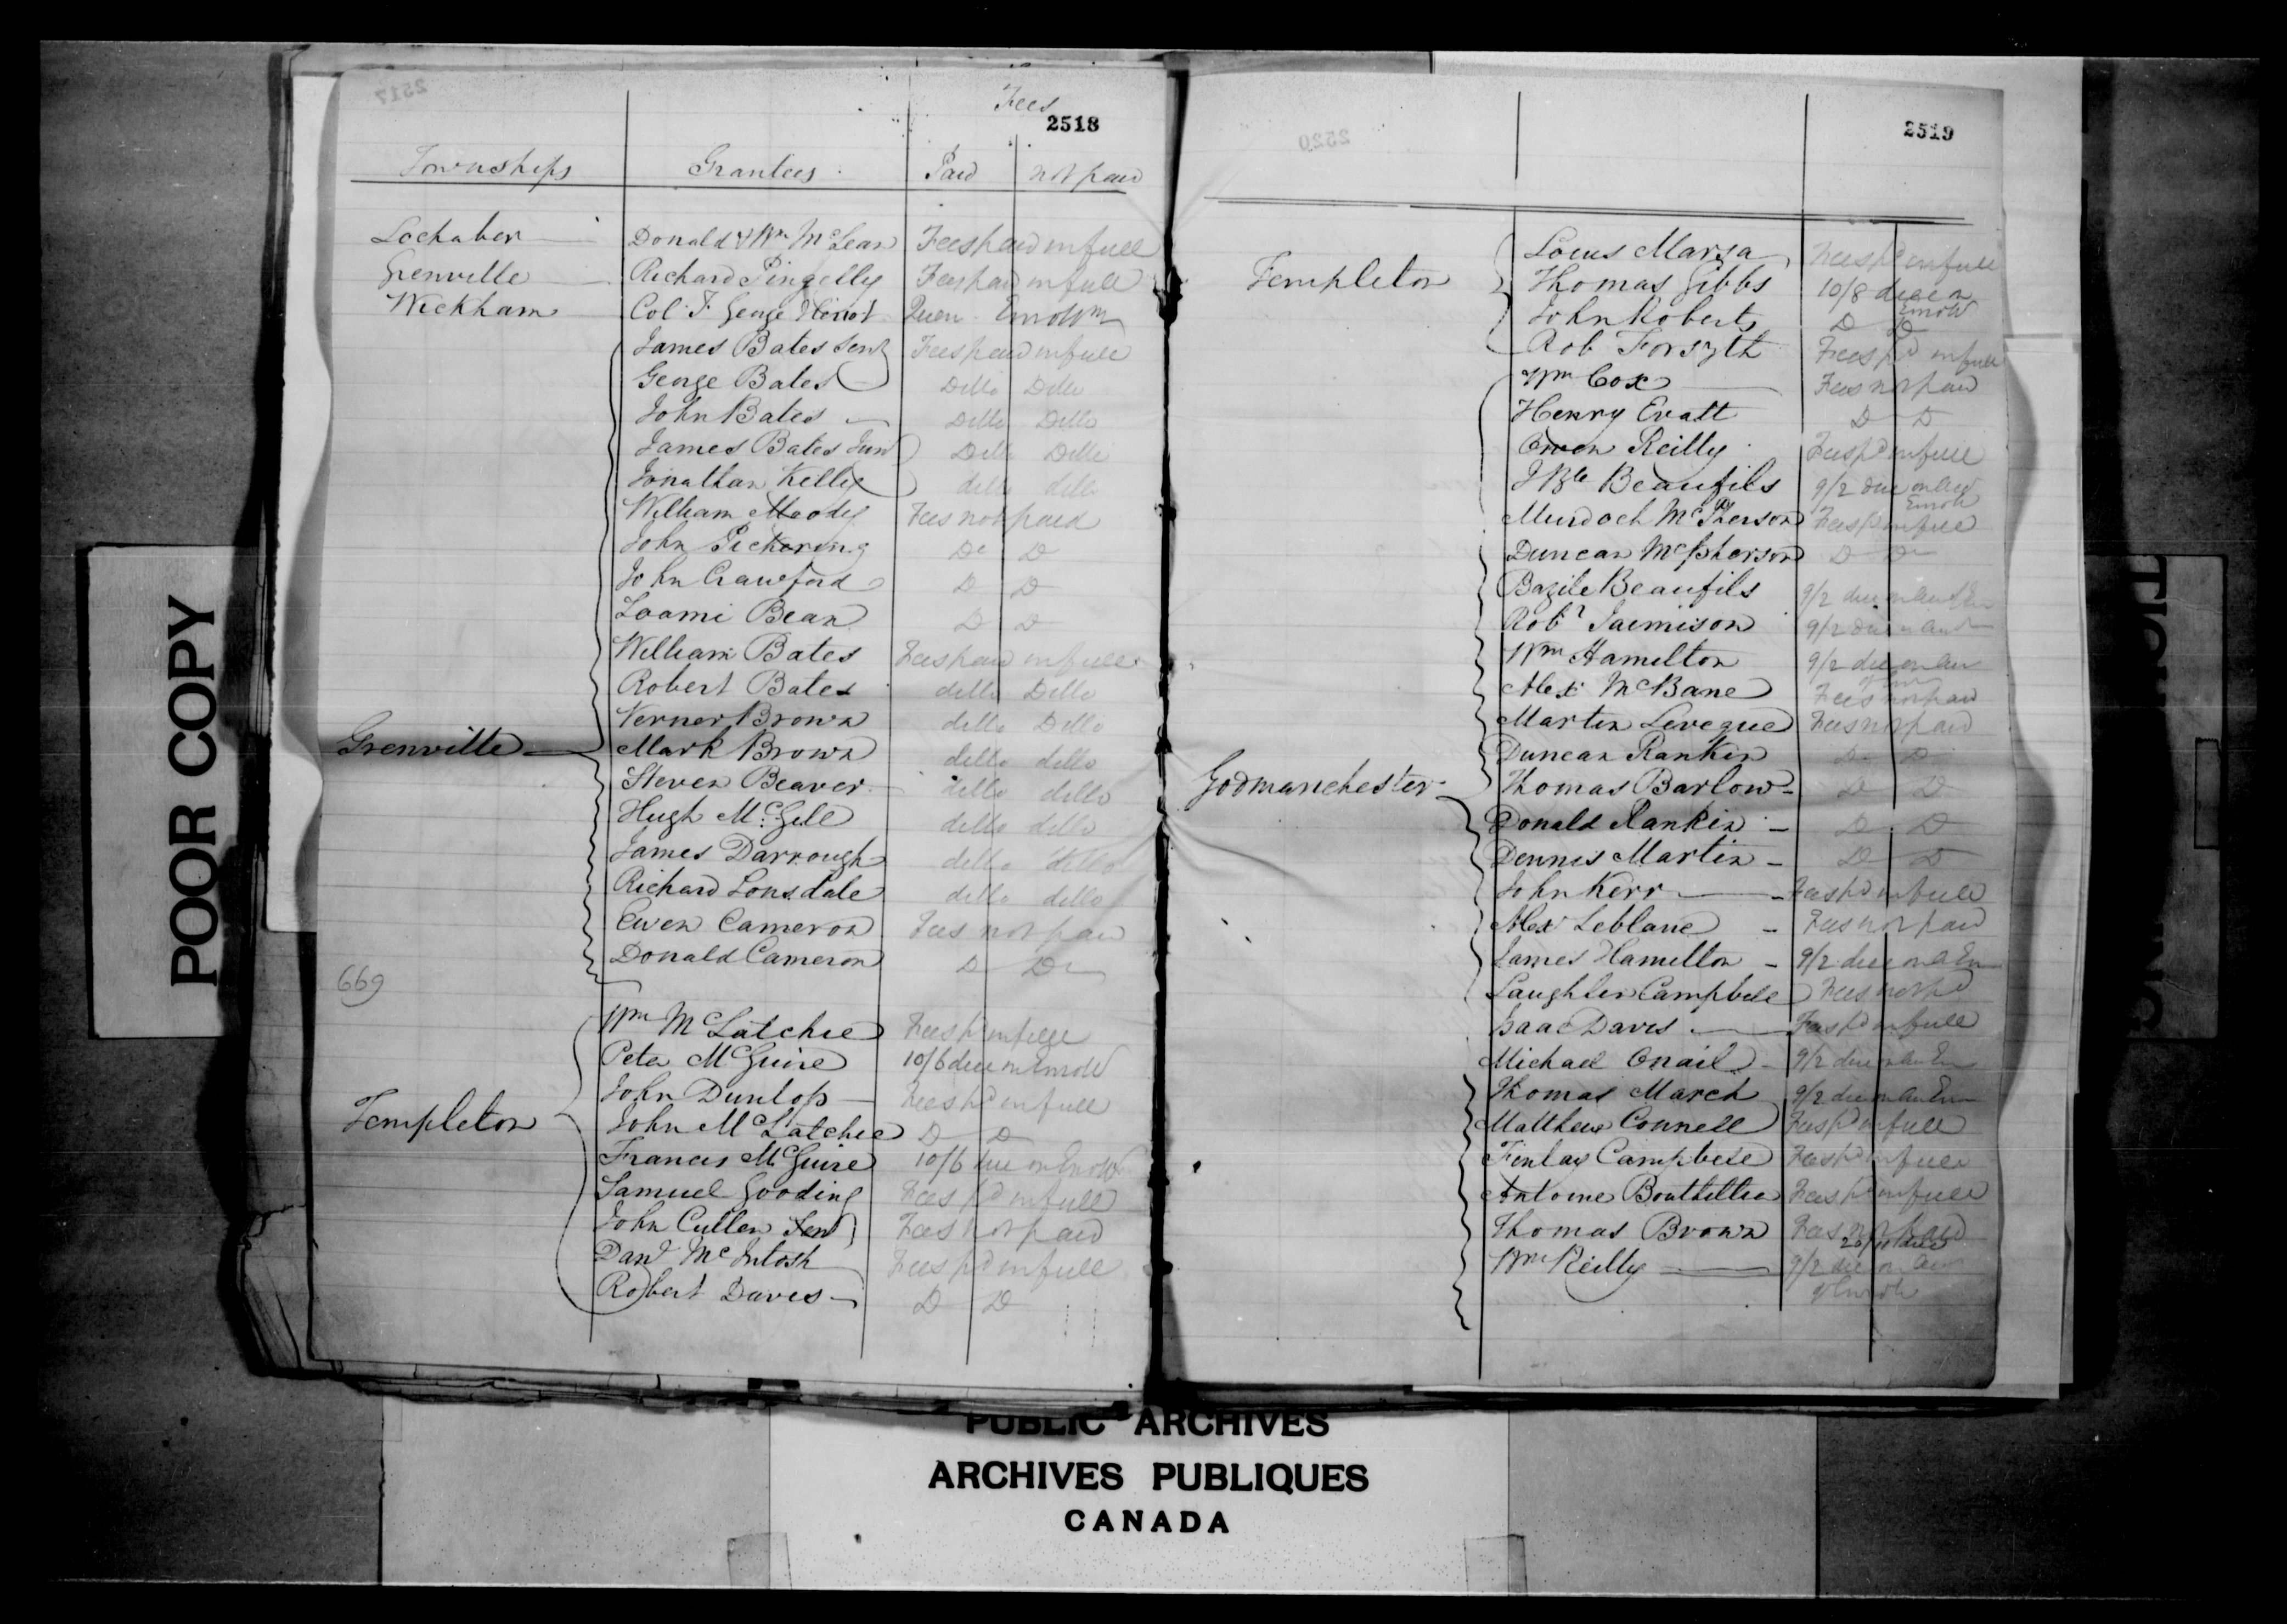 POOR COPY
2517
Fees
2518
Townships Grantees Paid not paid
Lochaber Donald & Wm McLean Fees paid in full
Grenville Richard Pingelly Fees paid in full
Wickham Col. F. George Heriot
James Bates Senr Fees paid in full
George Bates Ditto Ditto
John Bates Ditto Ditto
James Bates Junr Ditto Ditto
Jonathan Kelly ditto ditto
William Moody Fees not paid
John Pickering Do Do
John Crawford Do Do
Loami Bean Do Do
William Bates Fees paid in full
Robert Bates ditto Ditto
Verner Brown ditto Ditto
Grenville Mark Brown ditto ditto
Steven Beaver ditto ditto
Hugh McGill ditto ditto
James Darrough ditto ditto
Richard Lonsdale ditto ditto
Ewen Cameron Fees not paid
Donald Cameron Do Do
669
Wm McLatchie Fees pd in full
Peter McGuire 10/6 due on Enrolt
John Dunlop Fees pd in full
Templeton John McLatchie Do Do
Francis McGuire 10/6 due on Enrolt
Samuel Gooding Fees pd in full
John Cullen Senr Fees not paid
Danl McIntosh Fees pd in full
Robert Davis Do Do
2520
2519
Louis Marsa Fees pd in full
Templeton Thomas Gibbs 10/8 due on
Enrolt
John Roberts Do Do
Rob Forsyth Fees pd in full
Wm Cox Fees not paid
Henry Evatt Do Do
Owen Reilly Fees pd in full
J Bte Beaufils 9/2 due on Aud
Enrolt
Murdoch McPherson Fees pd in full
Duncan McPherson Do Do
Bazile Beaufils 9/2 due on Aud
Robt Jaimison 9/2 due on Aud
Wm Hamilton 9/2 due on Aud
Alex McBane Fees not paid
Martin Leveque Fees not paid
Duncan Rankin Do Do
Godmanchester Thomas Barlow Do Do
Donald Rankin Do Do
Dennis Martin Do Do
John Kerr Fees pd in full
Alexr Leblanc Fees not paid
James Hamilton 9/2 due on A En
Laughlin Campbell Fees not pd
Isaac Davis Fees pd in full
Michael Onail 9/2 due on Au En
Thomas March 9/2 due on Au En
Matthew Connell Fees pd in full
Finlay Campbell Fees pd in full
Antoine Bouthillier Fees pd in full
Thomas Brown Fees not paid
Wm Reilly 9/2 due on Aud
& Enrolt
PUBLIC ARCHIVES
ARCHIVES PUBLIQUES
CANADA